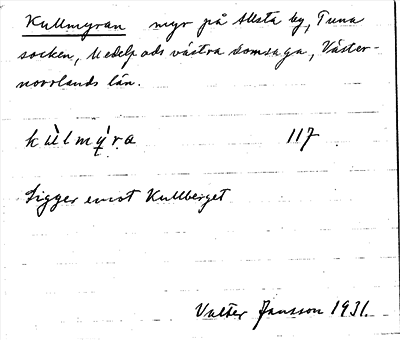 Kullmyran myr på Allsta by, Tuna
socken, Medelpads västra domsaga, Väster-
norrlands län.
kùlmý̨ra 117
Ligger invid Kullberget
Valter Jansson 1931.